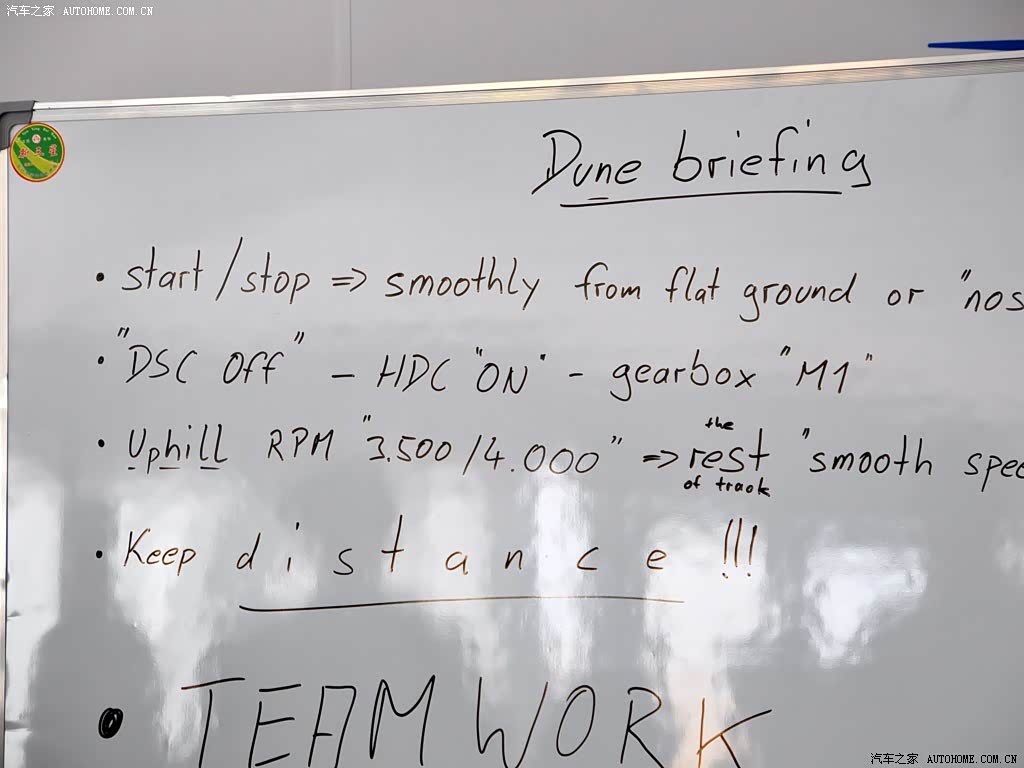 汽车之家 AUTOHOME.COM.CN
Dune briefing
• start/stop => smoothly from flat ground or "nos
• "DSC Off" - HDC "ON" - gearbox "M1"
• Uphill RPM "3.500/4.000" => the rest of track "smooth spee
• Keep distance !!!
• TEAM WORK
汽车之家 AUTOHOME.COM.CN